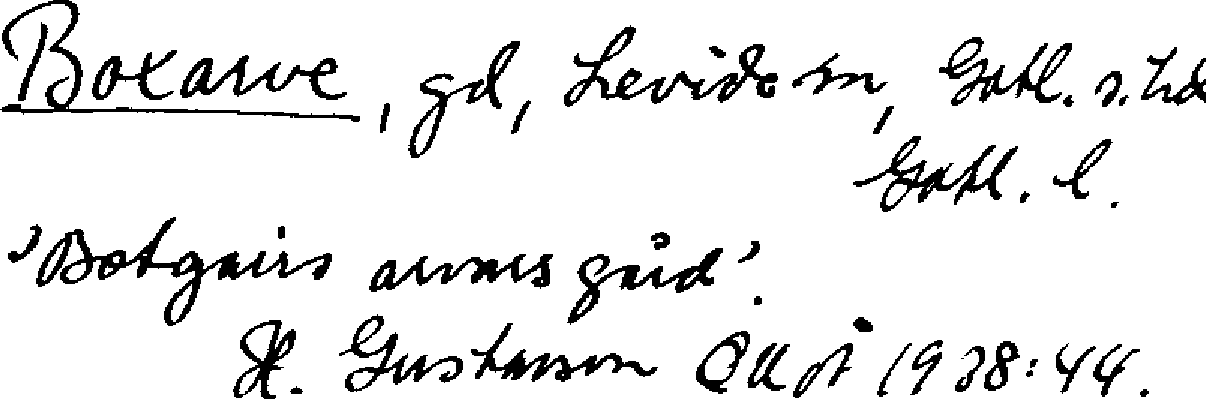 Boxarve, gd, Levide sn, Gotl. s. hd
Gotl. l.
'Botgairs arvars gård'.
H. Gustavson 1938:44.